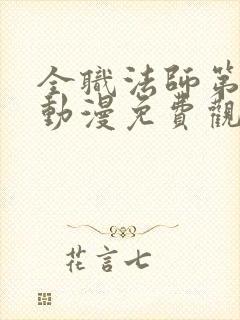 全職法師第
動漫免費觀
花言七